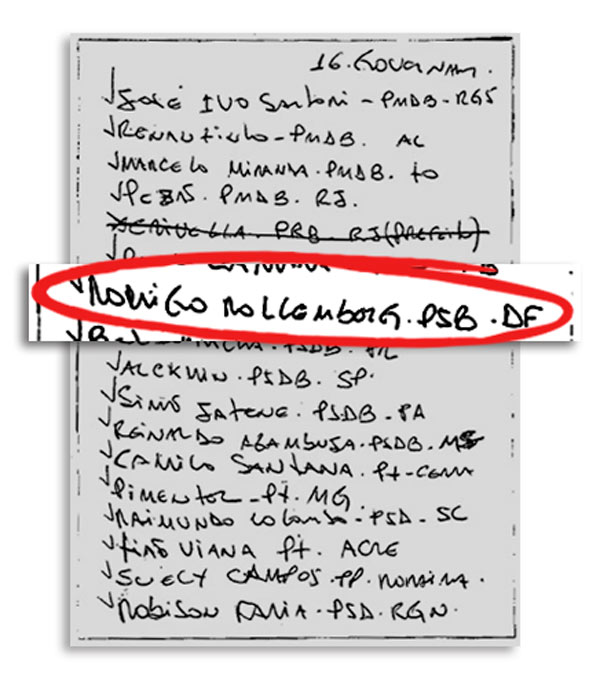 16. GOVERNAM.
JOSÉ IVO SARTORI - PMDB - RGS
RENAN FILHO - PMDB. AL
MARCELO MIRANDA. PMDB. TO
PEZÃO. PMDB. RJ.
CRIVELLA. PRB. RJ (PREFEITO)
RODRIGO ROLLEMBERG. PSB. DF
PSDB. PR
ALCKMIN. PSDB. SP.
SIMÃO JATENE. PSDB. PA
REINALDO AZAMBUJA. PSDB. MS
CAMILO SANTANA. PT - CEARA
PIMENTEL - PT. MG
RAIMUNDO COLOMBO - PSD. SC
TIÃO VIANA PT. ACRE
SUELY CAMPOS. PP. RORAIMA.
ROBISON FARIA. PSD. RGN.